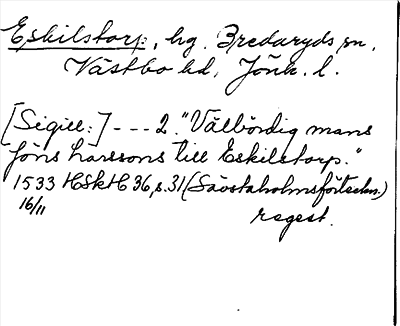 Eskilstorp, hg. Bredaryds sn,
Västbo hd, Jönk. l.
[Sigill:] --- 2. "Välbördig mans
Jöns Larssons till Eskilstorp."
1533 HSkH 36, s. 31 (Säostaholmsförteckn.)
16/11
regest.